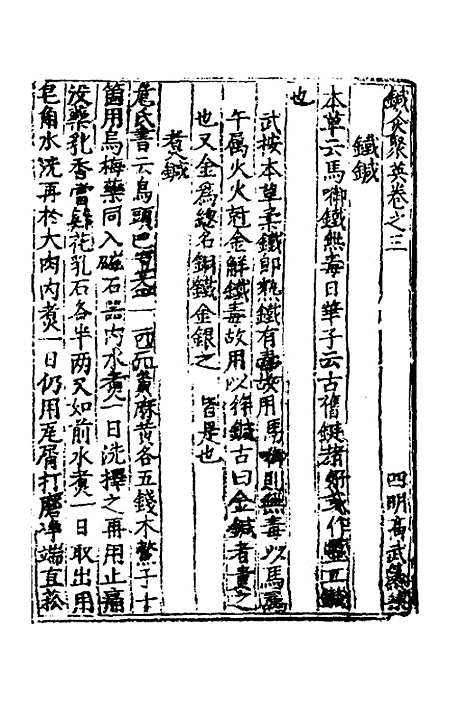 鍼灸聚英卷之三　四明高武纂集
鐵鍼
本草云馬啣鐵無毒日華子云古舊鋌者好或作醫工鍼
也
武按本草柔鐵即熟鐵有毒故用馬啣則無毒以馬屬
午屬火火尅金解鐵毒故用以作鍼古曰金鍼者貴之
也又金為總名銅鐵金銀之　皆是也
煮鍼
危氏書云烏頭巴豆各一两 麻黄各五錢木鱉子十
箇用烏梅藥同入磁石器内水煮一日洗擇之再用止痛
没藥乳香當歸花乳石各半两又如前水煮一日取出用
皂角水洗再於大肉内煮一日仍用瓦屑打磨 端直菘